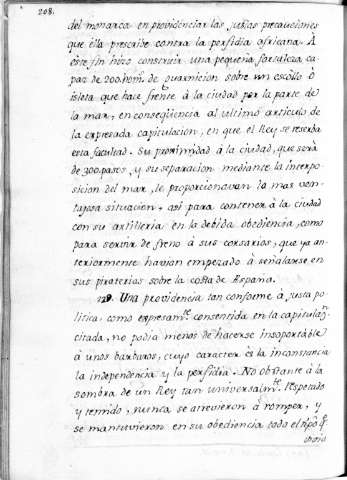 208.
del monarca en providenciar las justas precauciones
que ella prescribe contra la perfidia africana. À
este fin hizo construir una pequeña fortaleza ca-
paz de 200. hom.s de guarnicion sobre un escollo ò
isleta que hace frente à la ciudad por la parte de
la mar, en conseqüencia al ultimo articulo de
la expresada capitulacion, en que el Rey se reserba
esta facultad. Su proximidad à la ciudad, que será
de 300. pasos, y su separacion mediante la interpo-
sicion del mar, le proporcionavan la mas ven-
tajosa situacion, asi para contener à la ciudad
con su artilleria en la debida obediencia, como
para servir de freno à sus corsarios, que ya an-
teriormente havian empezado à señalarse en
sus piraterias sobre la costa de España.
Una providencia tan conforme à justa po-
litica, como expresam.te consentida en la capitulaç.n
citada, no podia menos de hacerse insoportable
à unos barbaros, cuyo caracter es la inconstancia
la independencia y la perfidia. No obstante à la
sombra de un Rey tan universalm.te respetado
y temido, nunca se atrevieron à romper, y
se mantuvieron en su obediencia todo el tiempo q.e